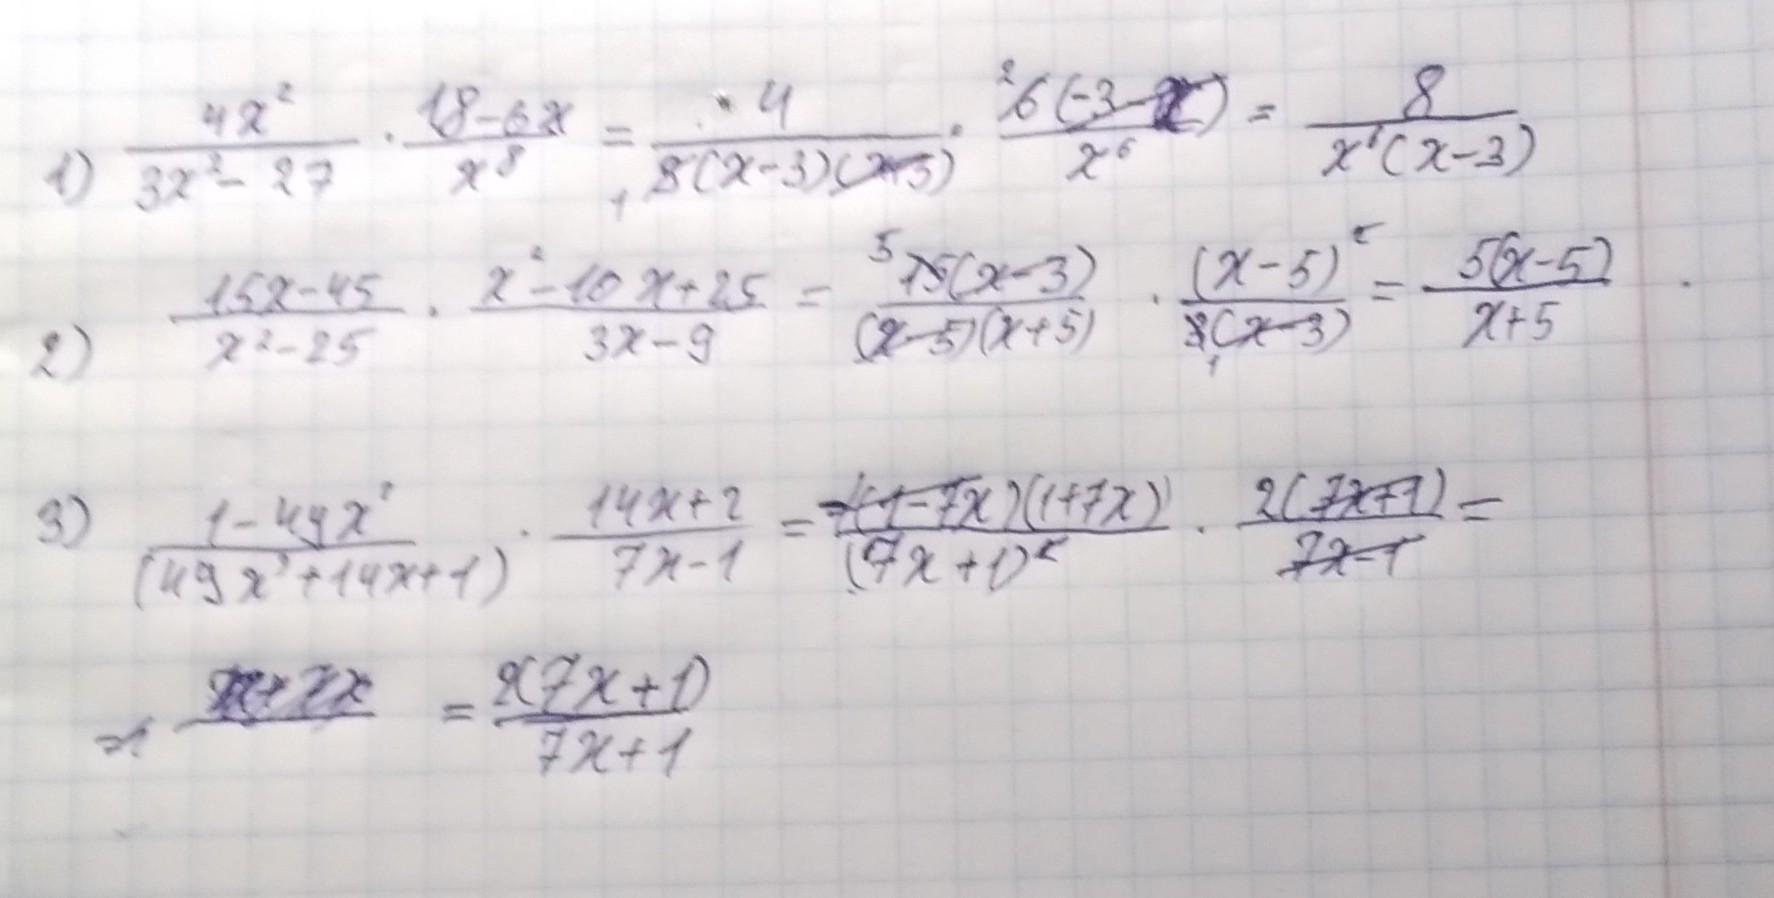 1) 4x²/(3x²-27) · (18-6x)/x⁸ = 4/(3(x-3)(x+3)) · ²6(-3-x)/x⁶ = 8/(x⁶(x-3))
2) (15x-45)/(x²-25) · (x²-10x+25)/(3x-9) = ⁵15(x-3)/((x-5)(x+5)) · (x-5)²/(3(x-3)) = 5(x-5)/(x+5) .
3) (1-49x²)/(49x²+14x+1) · (14x+2)/(7x-1) = -(1-7x)(1+7x)/(7x+1)² · 2(7x+1)/(7x-1) =
= 2(7x+1)/(7x+1)